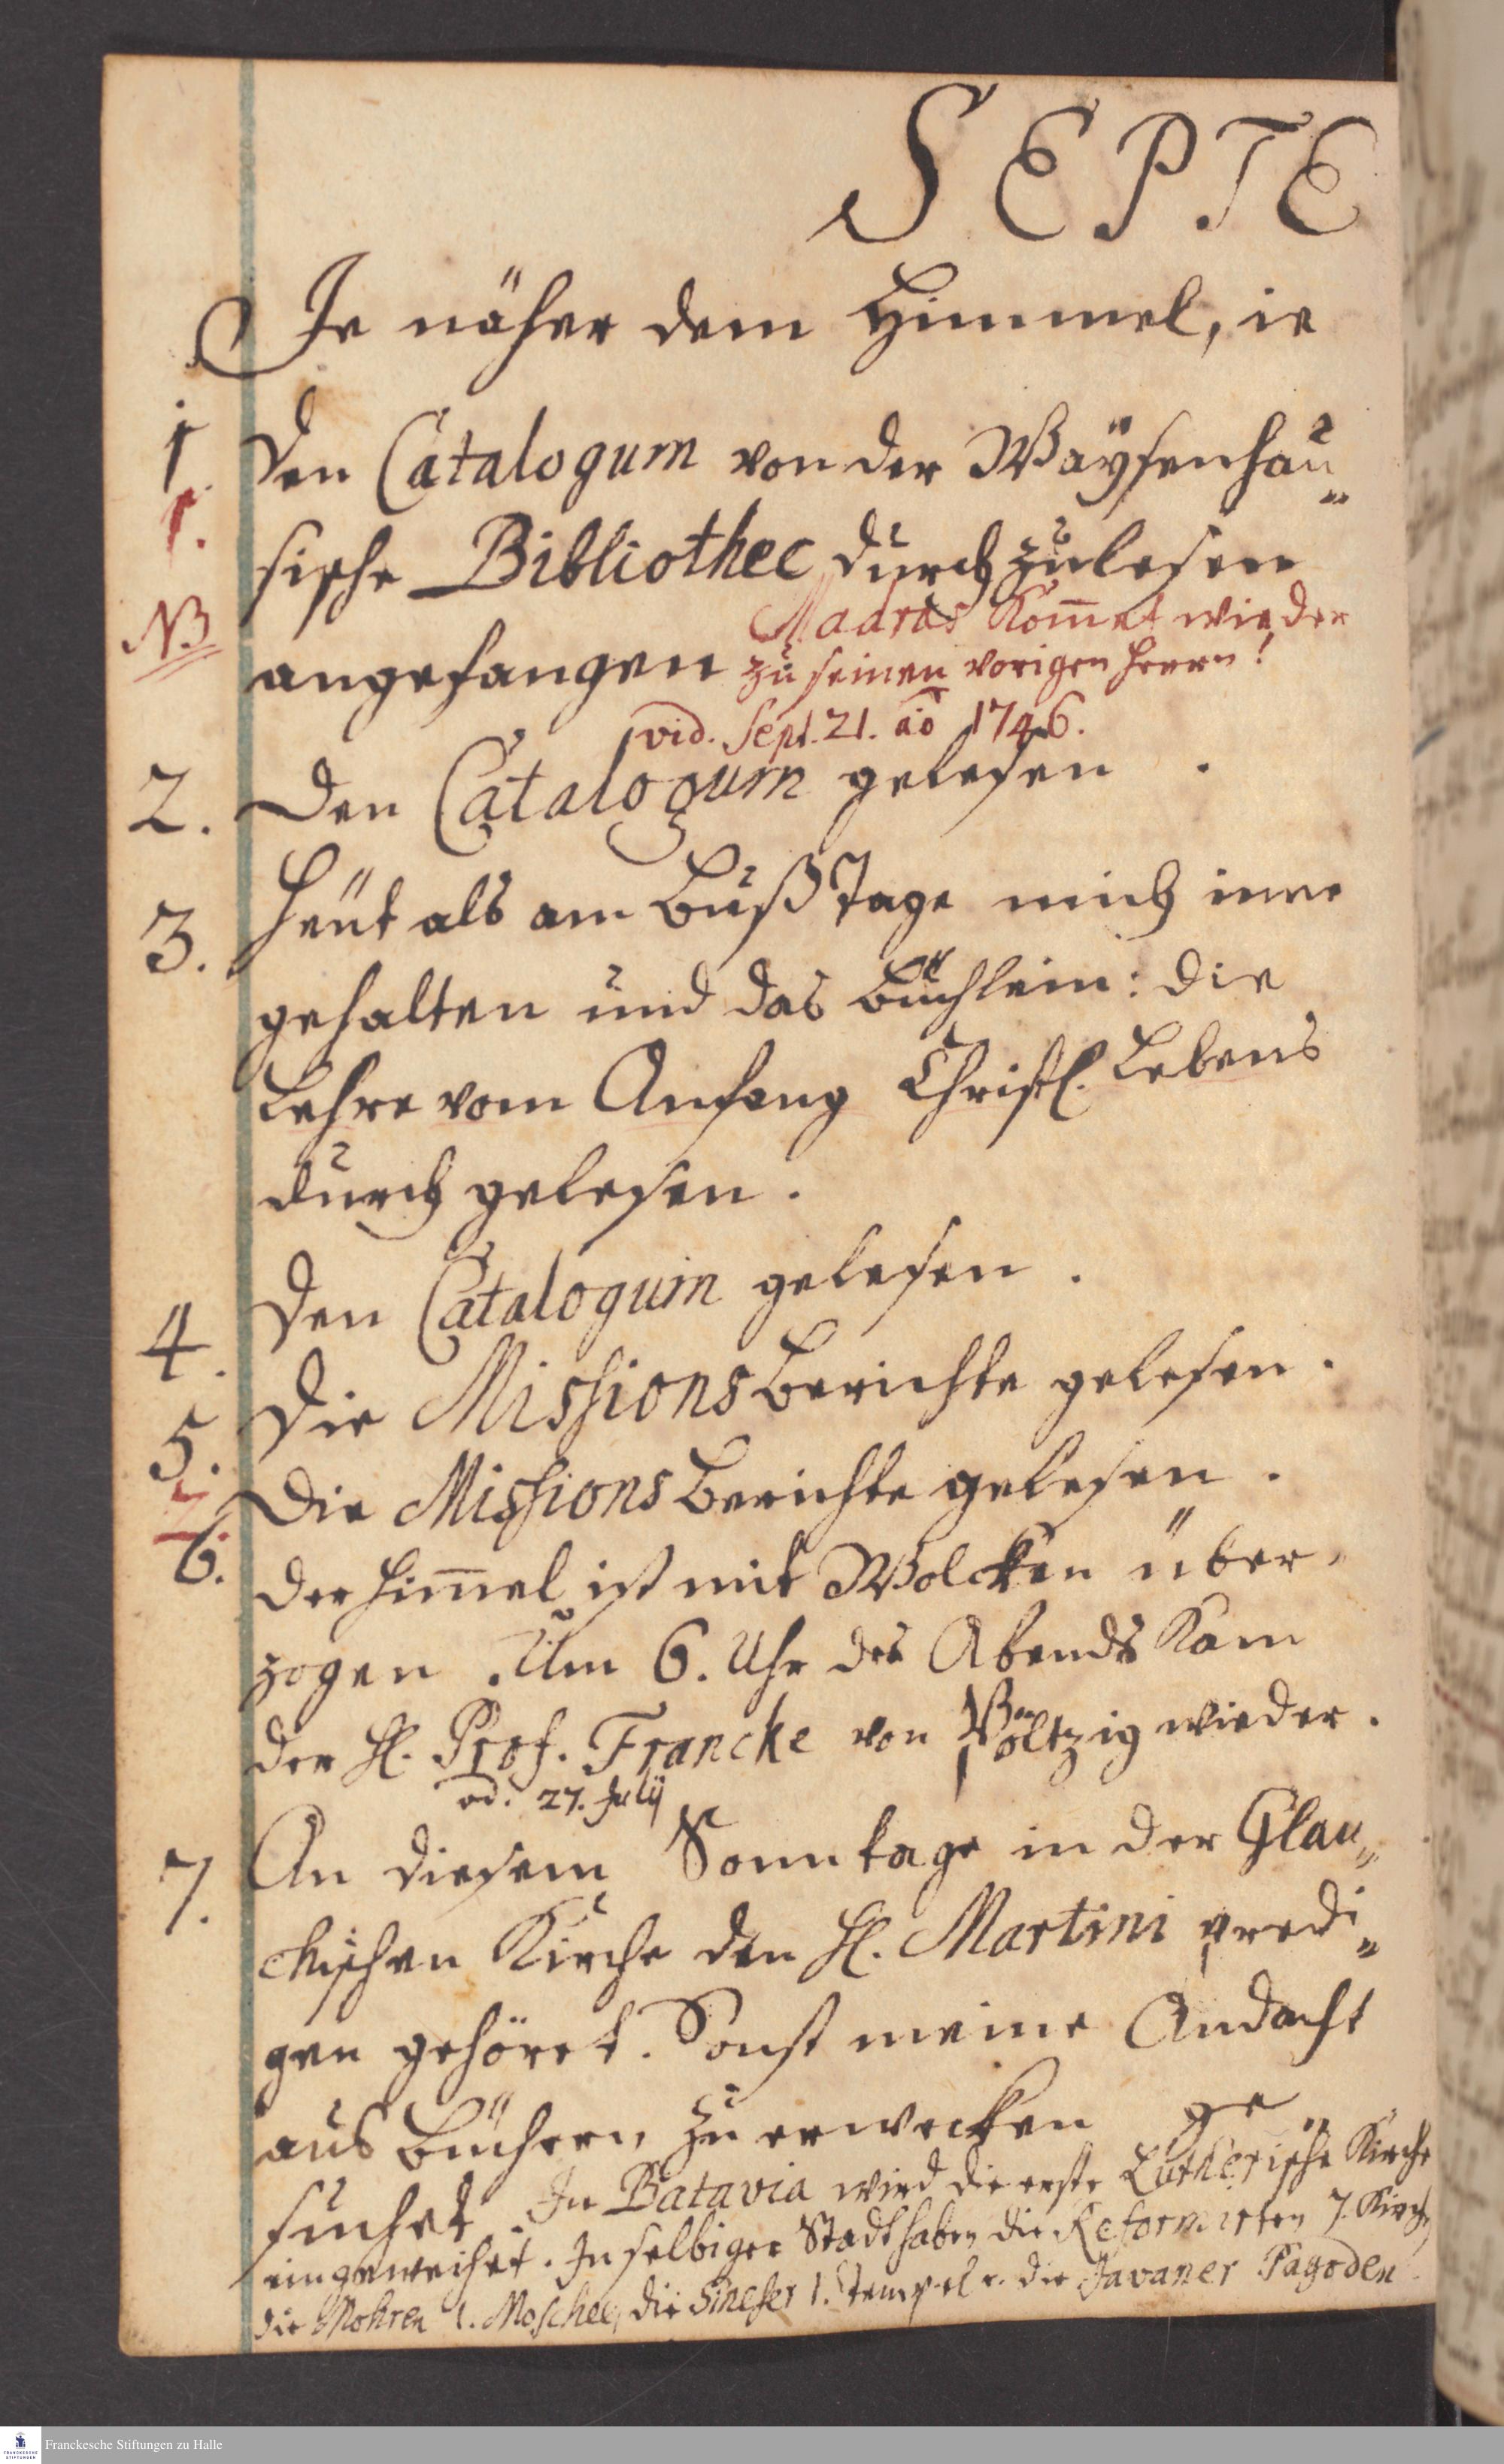 SEPTE
Je näher dem Himmel, ie
1. Den Catalogum von der Waÿsenhau„
1.
sische Bibliothec durchzulesen
NB
Madras kom̄et wieder
angefangen zu seinen vorigen Herrn!
vid. Sept. 21. aō 1746.
2. Den Catalogum gelesen.
3. Heüt als am Bußtage mich inne
gehalten und das Büchlein: die
Lehre vom Anfang Christl. Lebens
durch gelesen.
4. Den Catalogum gelesen.
5. Die Missions Berichte gelesen.
6. Die Missions Berichte gelesen.
Der Him̄el ist mit Wolcken über„
zogen. Um 6. Uhr des Abends kam
der H. Prof. Francke von Pöltzig wieder.
vd. 27. Julij
7. An diesem Sonntage in der Glau„
chischen Kirche den H. Martini predi„
gen gehöret. Sonst meine Andacht
aus Büchern zu erwecken ge
suchet. In Batavia wird die erste Lutherische Kirche
eingeweihet. In selbiger Stadt haben die Reformirten 7. Kirchen
die Mohren 1. Moschee, die Sineser 1. Tempel u. die Javaner Pagoden
Franckesche Stiftungen zu Halle